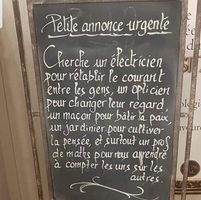 Petite annonce urgente
Cherche un électricien
pour rétablir le courant
entre les gens, un opticien
pour changer leur regard,
un maçon pour bâtir la paix,
un jardinier pour cultiver
la pensée, et surtout un prof
de maths pour nous apprendre
à compter les uns sur les
autres.